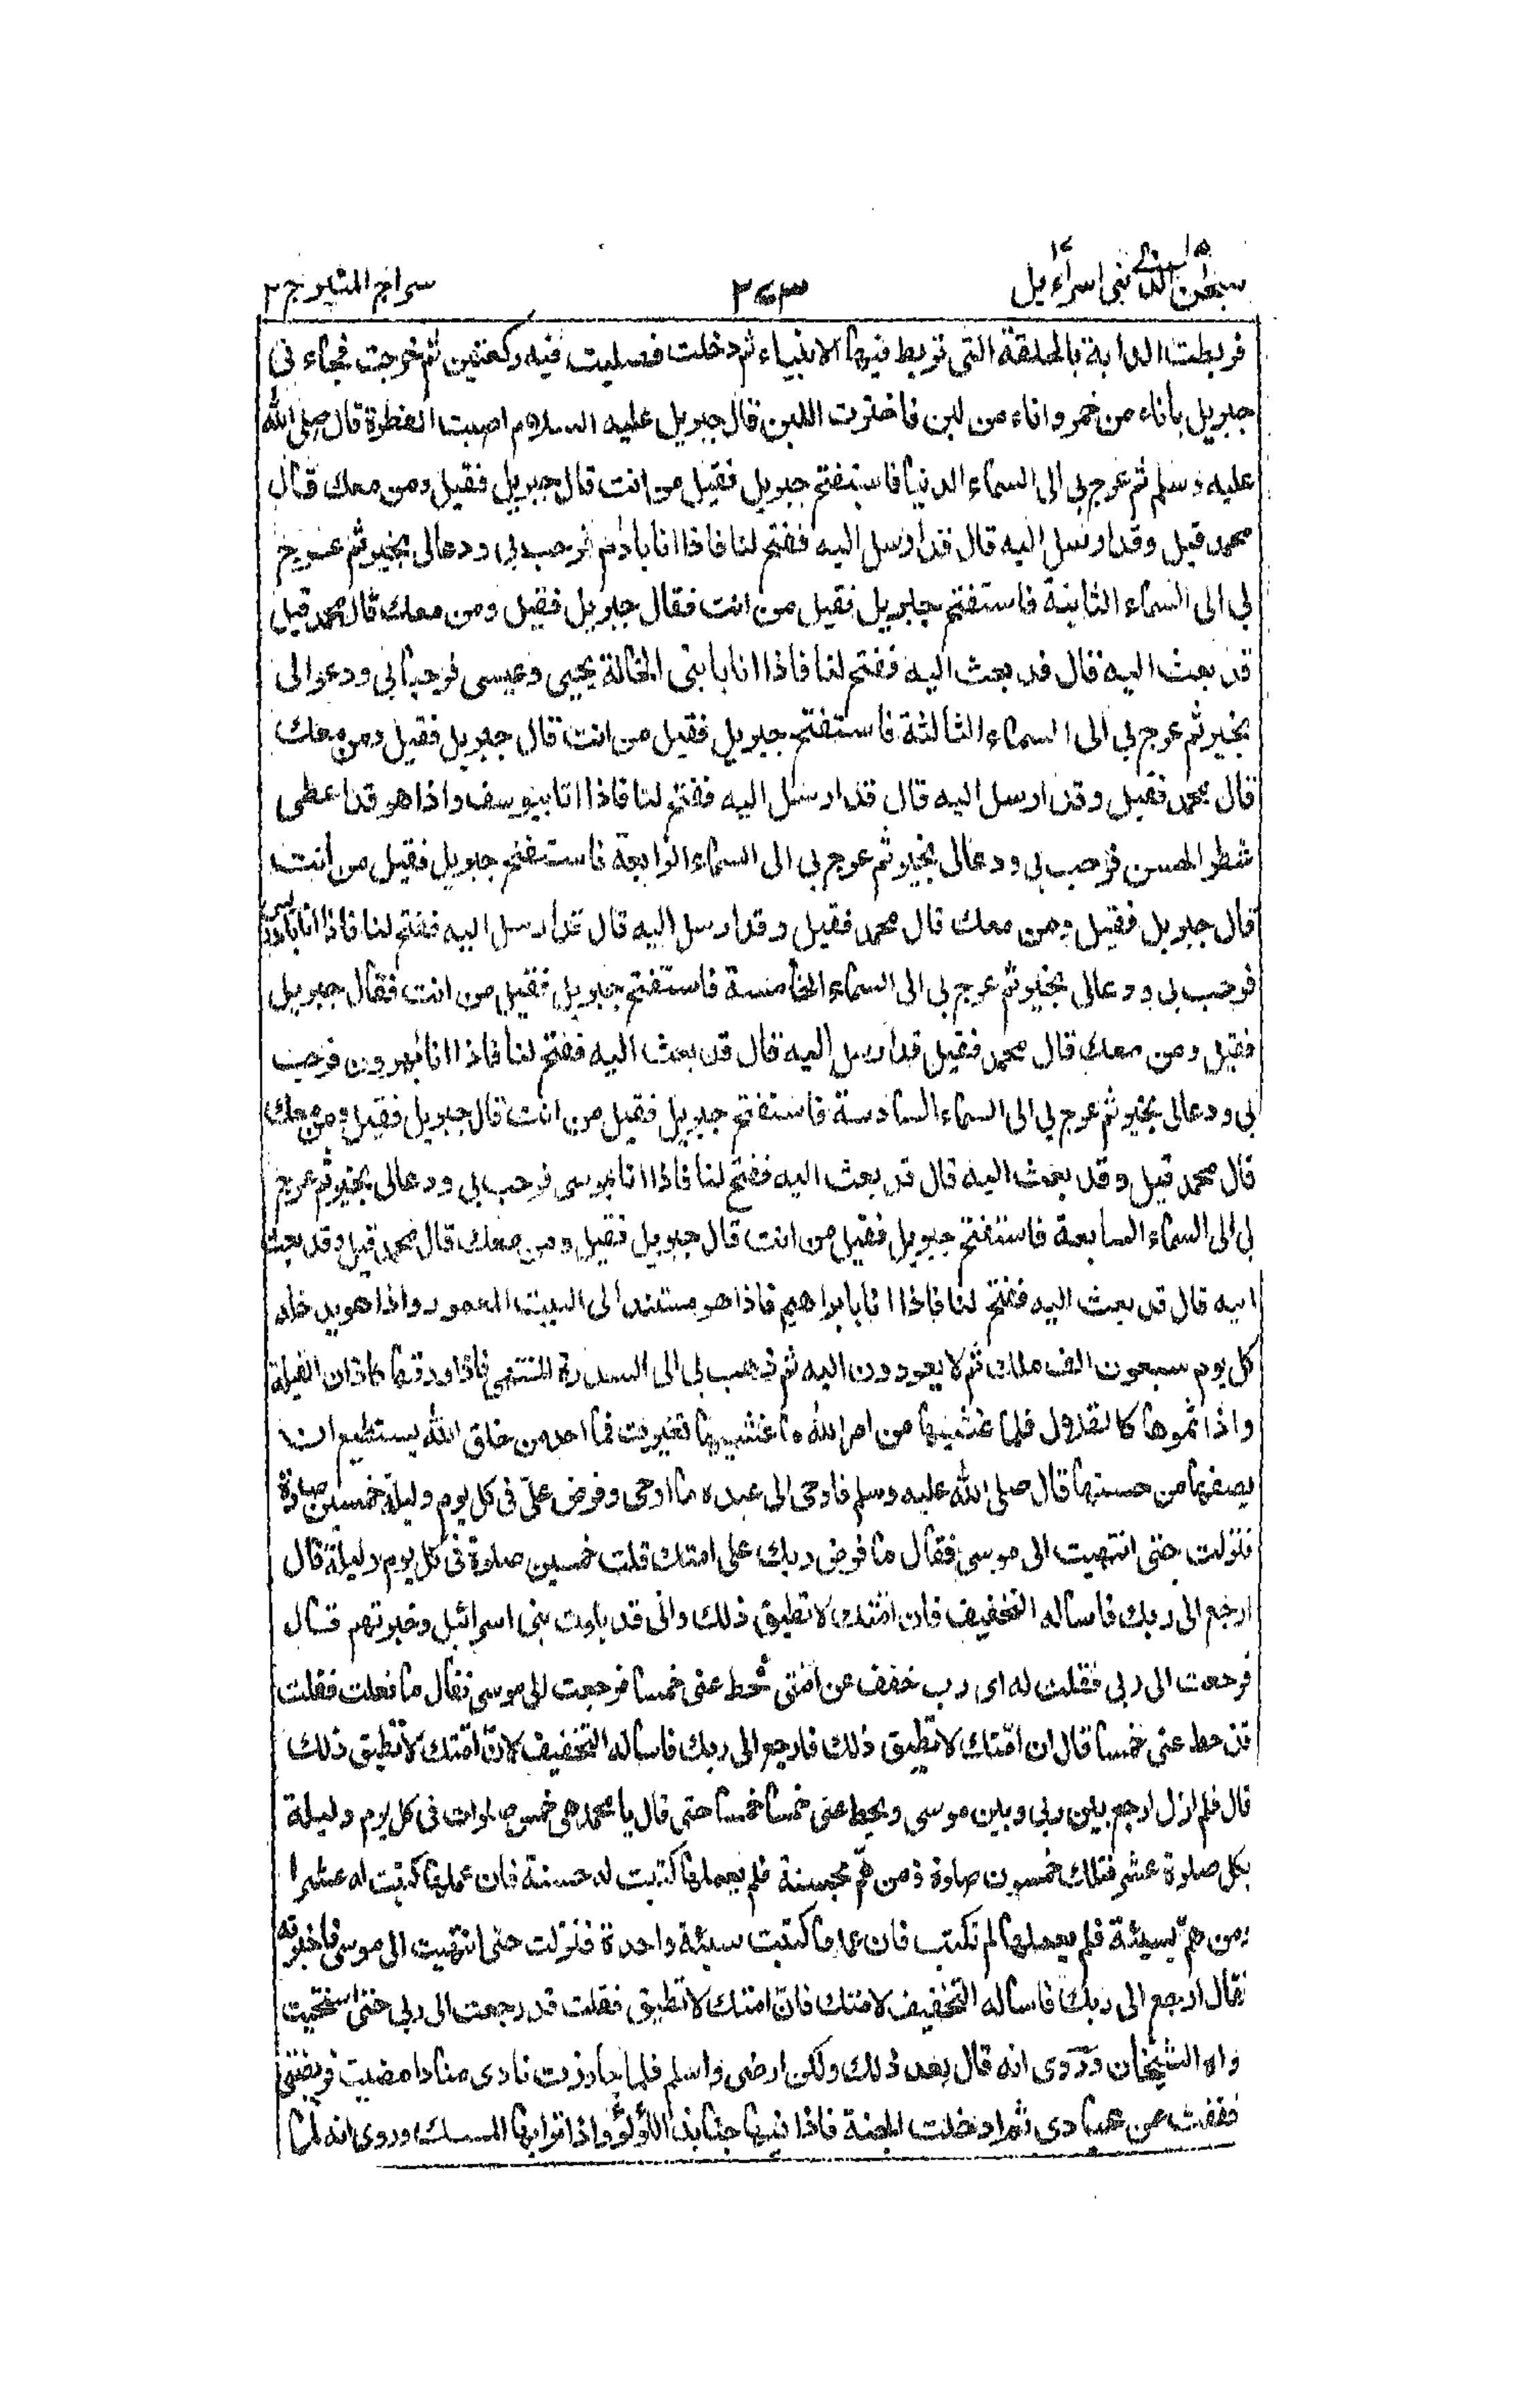 سبحن الذى ١٥ بنى اسرآءيل ١٧
٢٧٣
سراج المنير ج ٢
فربطت الدابة بالحلقة التى تربط فيها الانبياء ثم دخلت فصليت فيه ركعتين ثم خرجت فجاء نى
جبريل باناء من خمر واناء من لبن فاخترت اللبن فقال جبريل عليه السلام اصبت الفطرة قال صلى الله
عليه وسلم ثم عرج بى الى السماء الدنيا فاستفتح جبريل فقيل من انت قال جبريل فقيل ومن معك قال
محمد قيل وقد ارسل اليه قال قد ارسل اليه ففتح لنا فاذا انا بادم فرحب بى ودعالى بخير ثم عرج
بى الى السماء الثانية فاستفتح جبريل فقيل من انت فقال جبريل فقيل ومن معك قال محمد قيل
قد بعث اليه قال قد بعث اليه ففتح لنا فاذا انا بابنى الخالة يحيى وعيسى فرحبا بى ودعوالى
بخير ثم عرج بى الى السماء الثالثة فاستفتح جبريل فقيل من انت قال جبريل فقيل ومن معك
قال محمد فقيل وقد ارسل اليه قال قد ارسل اليه ففتح لنا فاذا انا بيوسف واذا هو قد اعطى
شطر الحسن فرحب بى ودعالى بخير ثم عرج بى الى السماء الرابعة فاستفتح جبريل فقيل من انت
قال جبريل فقيل ومن معك قال محمد فقيل وقد ارسل اليه قال قد ارسل اليه ففتح لنا فاذا انا بادريس
فرحب بى ودعالى بخير ثم عرج بى الى السماء الخامسة فاستفتح جبريل فقيل من انت فقال جبريل
فقيل ومن معك قال محمد فقيل قد ارسل اليه قال قد بعث اليه ففتح لنا فاذا انا بهرون فرحب
بى ودعالى بخير ثم عرج بى الى السماء السادسة فاستفتح جبريل فقيل من انت قال جبريل فقيل ومن معك
قال محمد قيل وقد بعث اليه قال قد بعث اليه ففتح لنا فاذا انا بموسى فرحب بى ودعالى بخير ثم عرج
بى الى السماء السابعة فاستفتح جبريل فقيل من انت قال جبريل فقيل ومن معك قال محمد قيل وقد بعث
اليه قال قد بعث اليه ففتح لنا فاذا انا بابراهيم فاذا هو مستند الى البيت المعمور واذا هو يدخله
كل يوم سبعون الف ملك ثم لا يعودون اليه ثم ذهب بى الى السدرة المنتهى فاذا ورقها كاذان الفيلة
واذا ثمرها كالقلال فلما غشيها من امر الله ما غشيها تغيرت فما احد من خلق الله يستطيع ان
يصفها من حسنها قال صلى الله عليه وسلم فاوحى الى عبده ما اوحى وفرض علىّ فى كل يوم وليلة خمسين صلوة
فنزلت حتى انتهيت الى موسى فقال ما فرض ربك على امتك قلت خمسين صلوة فى كل يوم وليلة قال
ارجع الى ربك فاساله التخفيف فان امتك لا تطيق ذلك وانى قد بلوت بنى اسرائيل وخبرتهم قال
فرجعت الى ربى فقلت له اى رب خفف عن امتى فحط عنى خمسا فرجعت الى موسى فقال ما فعلت فقلت
قد حط عنى خمسا قال ان امّتك لا تطيق ذلك فارجع الى ربك فاساله التخفيف لانّ امّتك لا تطيق ذلك
قال فلم ازل ارجع بين ربى وبين موسى ويحط عنى خمسا خمسا حتى قال يا محمد هى خمس صلوات فى كل يوم وليلة
بكل صلوة عشر فتلك خمسون صلوة ومن همّ بحسنة فلم يعملها كتبت له حسنة فان عملها كتبت له عشرا
ومن همّ بسيئة فلم يعملها لم تكتب فان عملها كتبت سيئة واحدة فنزلت حتى انتهيت الى موسى فاخبرته
فقال ارجع الى ربك فاساله التخفيف لامتك فانّ امتك لا تطيق فقلت قد رجعت الى ربى حتى استحييت
واه الشيخان وروى انه قال بعد ذلك ولكن ارضى واسلم فلما جاوزت نادى مناد امضيت فريضتى
فخففت عن عبادى ثم ادخلت الجنة فاذا فيها جنابذ اللؤلؤ واذا ترابها المسك وروى انه لما